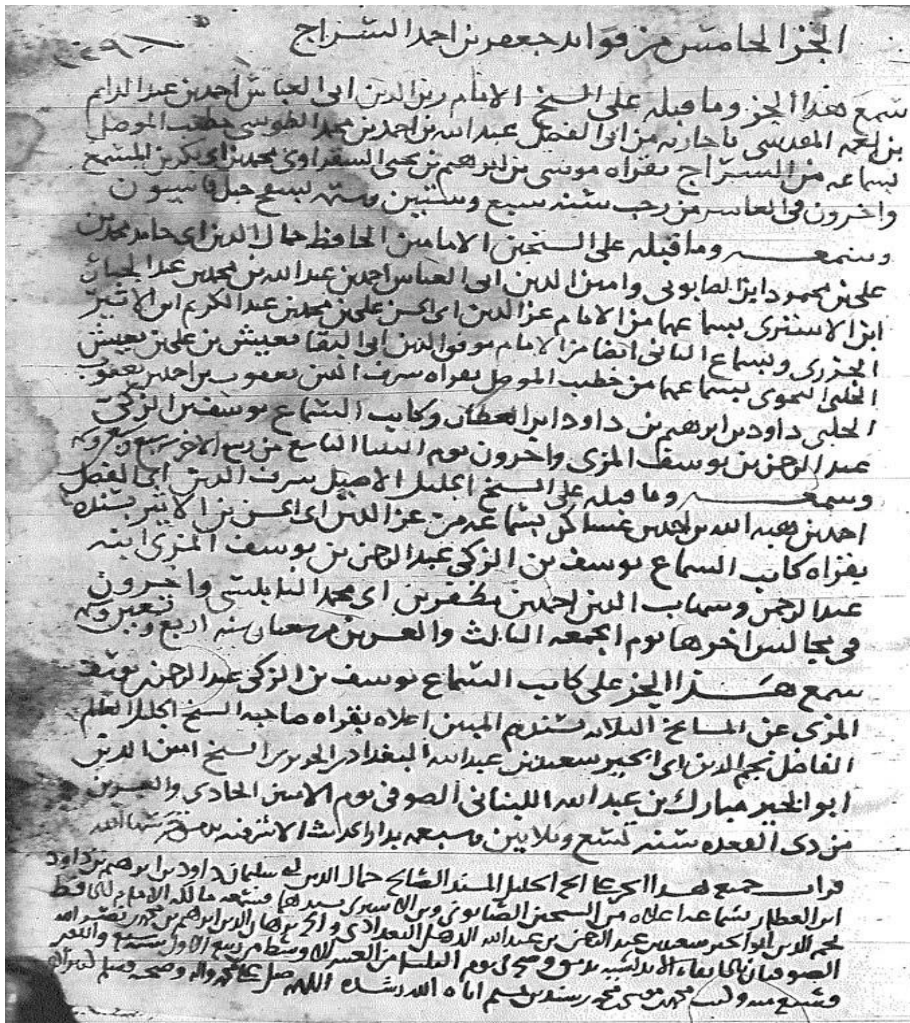 الجزء الخامس من فوائد جعفر بن احمد السراج
سمع هذا الجزء وما قبله على الشيخ الامام زين الدين ابي العباس احمد بن عبد الدايم
بن نعمه المقدسي باجازته من ابي الفضل عبد الله بن احمد بن محمد الطوسي خطيب الموصل
بسماعه من السراج بقراه موسى بن ابرهيم بن يحيى الشقراوي محمد بن ابي بكر بن
واخرون في العاشر من رجب سنه سبع وستين وسته بسفح جبل قاسيون
وسمعه وما قبله على الشيخين الامامين الحافظ جمال الدين ابي حامد محمد بن
علي بن محمود ابن الصابوني وامين الدين ابي العباس احمد بن عبد الله بن محمد بن عبد الجبار
ابن الاشتري بسماعهما من الامام عز الدين ابي الحسن علي بن محمد بن عبد الكريم ابن الاثير
الجزري وبسماع الثاني ايضا من الامام موفق الدين ابي البقا يعيش بن علي بن يعيش
الحلبي النحوي بسماعهما من خطيب الموصل بقراه شرف الدين يعقوب بن احمد بن يعقوب
الحلبي داود بن ابرهيم بن داود ابن العطار وكاتب السماع يوسف بن الزكي
عبد الرحمن بن يوسف المزي واخرون يوم التاسع من ربيع الاخر
وسمعه وما قبله على الشيخ الجليل الاصيل شرف الدين ابي الفضل
احمد بن هبه الله بن احمد بن عساكر بسماعه من عز الدين ابي الحسن بن الاثير بسنده
بقراه كاتب السماع يوسف بن الزكي عبد الرحمن بن يوسف المزي ابنه
عبد الرحمن وشهاب الدين احمد بن مظفر بن ابي محمد النابلسي واخرون
في مجالس اخرها يوم الجمعه الثالث والعشرين من شعبان سنه اربع وتسعين وسته
سمع هذا الجزء على كاتب السماع يوسف بن الزكي عبد الرحمن بن يوسف
المزي عن المشايخ الثلاثه بسندهم المبين اعلاه بقراه صاحبه الشيخ الجليل العالم
الفاضل نجم الدين ابي الخير سعيد بن عبد الله البغدادي الحريري الشيخ امين الدين
ابو الخير مبارك بن عبد الله اللبناني الصوفي يوم الاثنين الحادي والعشرين
من ذي القعده سنه تسع وثلاثين وسبعمه بدار الحديث الاشرفيه بدمشق
قرات جميع هذا الجزء على الجليل المسند الصالح جمال الدين ابي سليمان داود بن ابرهيم بن داود
ابن العطار بسماعه اعلاه من الشيخين الصابوني وبن الاشتري بسندهما فسمعه مالكه الامام الحافظ
نجم الدين ابو الخير سعيد بن عبد الله الدهلي البغدادي وبرهان الدين ابرهيم بن محمد بن نصر الله
الصوفيان بالخانقاه بدمشق وصح في يوم الثلثا من العشر الاوسط من ربيع الاول سنه
وكتب محمد بن موسى بن محمد بن سند صلى على محمد واله وصحبه وسلم